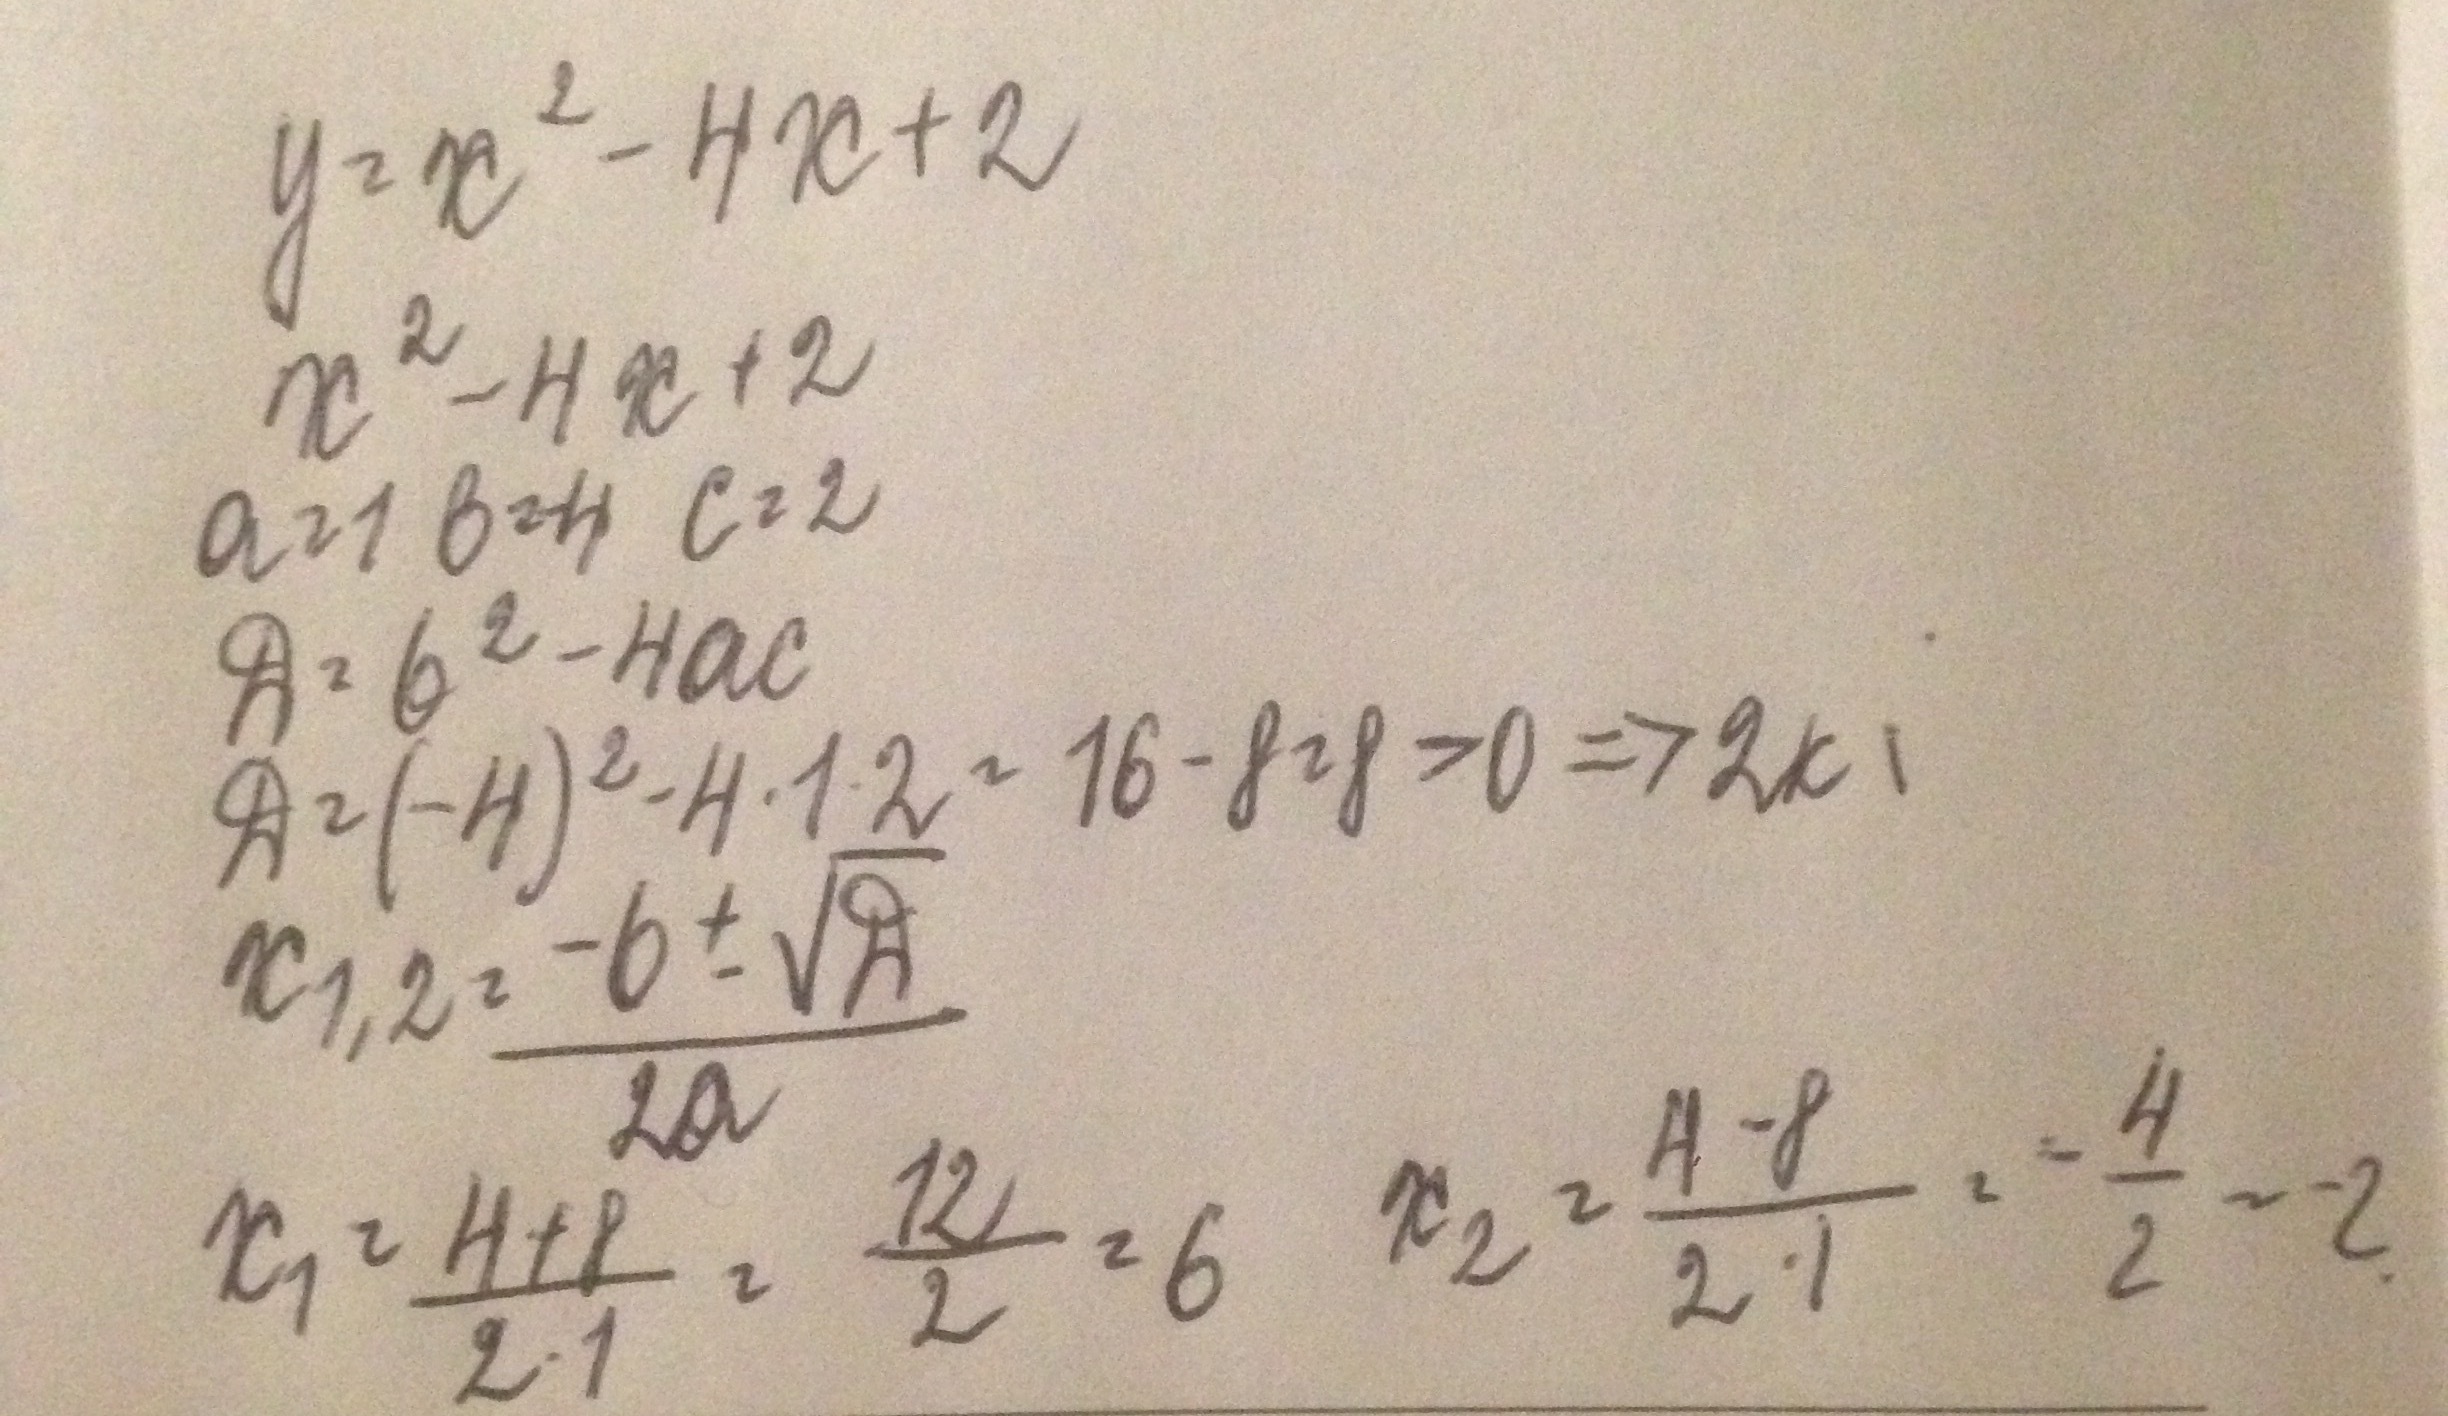 y = x² - 4x + 2
x² - 4x + 2
a = 1 b = -4 c = 2
Д = b² - 4ac
Д = (-4)² - 4 · 1 · 2 = 16 - 8 = 8 > 0 => 2 к
x₁,₂ = (-b ± √Д) / 2a
x₁ = (4 + 8) / (2 · 1) = 12 / 2 = 6 x₂ = (4 - 8) / (2 · 1) = - 4 / 2 = -2